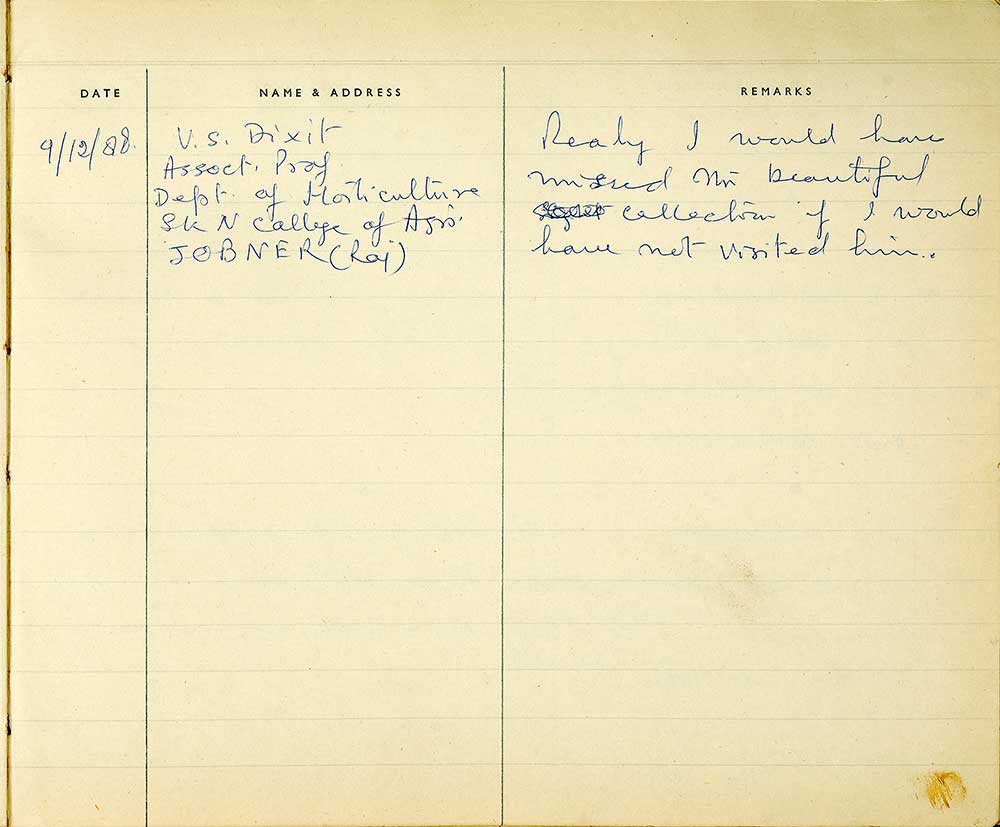 DATE NAME & ADDRESS REMARKS
9/12/88. V.S. Dixit Realy I would have
Assoct. Prof. missed this beautiful
Dept. of Horticulture collection if I would
SKN College of Agri. have not visited him..
JOBNER (Raj)